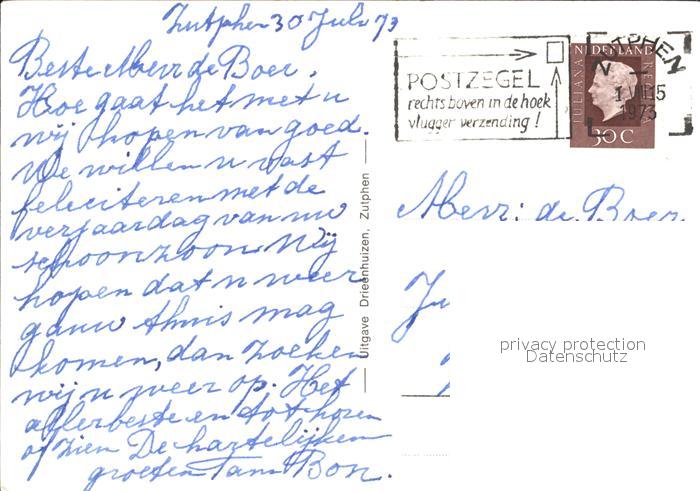 Zutphen 30 Juli 73
Beste Mevr de Boer.
Hoe gaat het met u
wij hopen van goed.
We willen u vast
feliciteren met de
verjaardag van uw
schoonzoon. Wij
hopen dat u weer
gauw thuis mag
komen, dan zoeken
wij u weer op. Het
allerbeste en tot horen
of zien De hartelijken
groeten Fam Bon.
Uitgave Drieënhuizen, Zutphen
POSTZEGEL
rechts boven in de hoek
vlugger verzending!
ZUTPHEN
1.VIII.15
1973
NEDERLAND
JULIANA REGINA
30 C
Mevr. de Boer.
privacy protection
Datenschutz